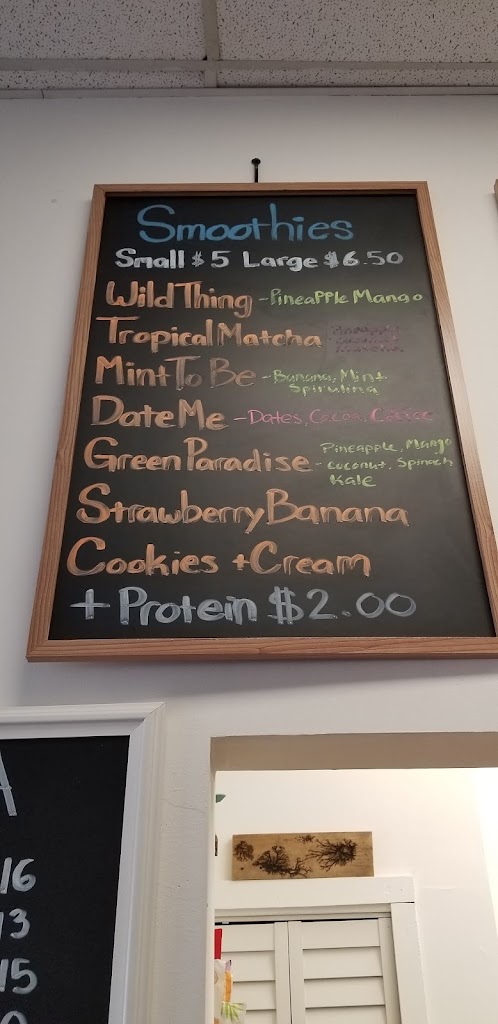 Smoothies
Small $5 Large $6.50
Wild Thing - Pineapple Mango
Tropical Matcha
Mint To Be - Banana, Mint
Spirulina
Date Me - Dates, Cocoa, Coffee
Green Paradise - Pineapple, Mango
Coconut, Spinach
Kale
Strawberry Banana
Cookies + Cream
+ Protein $2.00
A
16
13
15